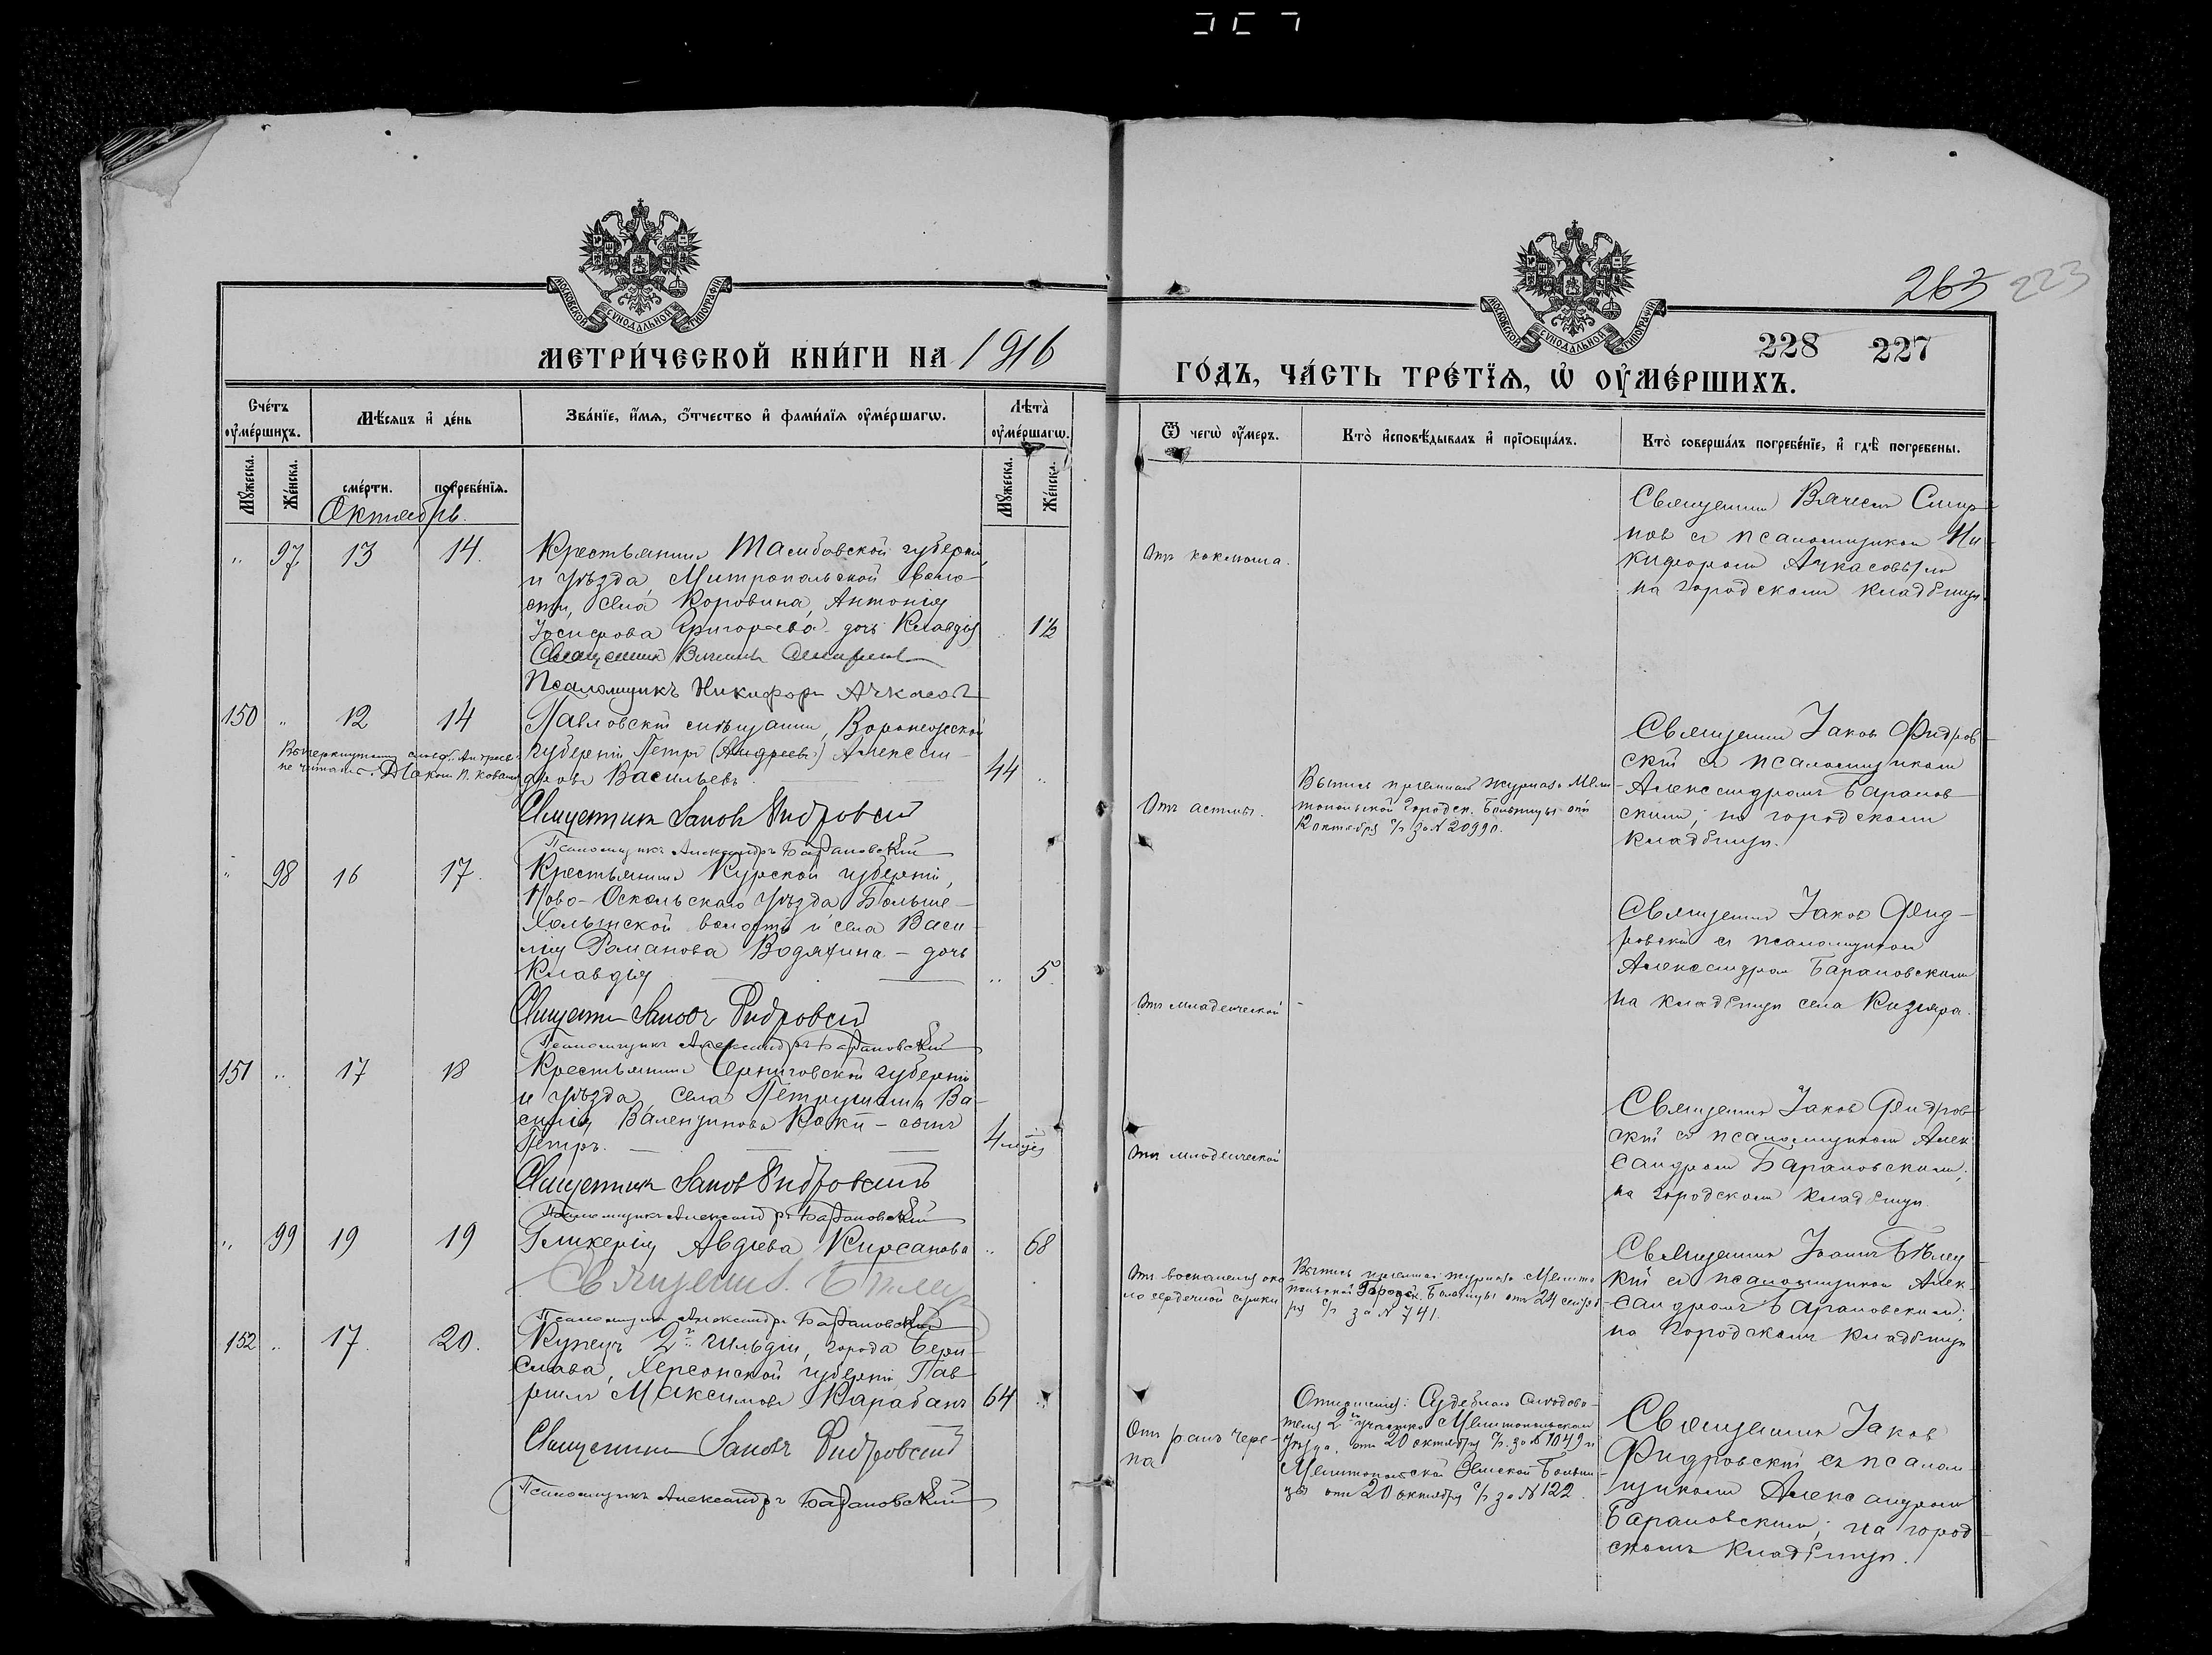 263 223
228 227
МОСКОВСКОЙ СѴНОДАЛЬНОЙ ТИПОГРАФІИ
МЕТРИ́ЧЕСКОЙ КНИ́ГИ НА 1916
МОСКОВСКОЙ СѴНОДАЛЬНОЙ ТИПОГРАФІИ
ГО́ДЪ, ЧА́СТЬ ТРЕ́ТЇѦ, Ѡ҆ ОУ҆МЕ́РШИХЪ.
Сче́тъ оу҆ме́ршихъ.
Мѣ́сяцъ и҆ де́нь
Зва́нїе, и҆́мѧ, ѻ҆́тчество и҆ фами́лїѧ оу҆ме́ршагѡ.
Лѣ́та оу҆ме́ршагѡ.
Ѿ чегѡ̀ оу҆́меръ.
Кто̀ и҆сповѣ́дывалъ и҆ прїѡбща́лъ.
Кто̀ соверша́лъ погребе́нїе, и҆ гдѣ̀ погребены.
Мꙋ́жеска.
Же́нска.
сме́рти.
погребе́нїѧ.
Мꙋ́жеска.
Же́нска.
Октябрь.
„ 97 13 14.
Крестьянина Тамбовской губерніи
и уѣзда, Митропольской воло-
сти, села Коровина, Антонія
Іосифова Григорьева – дочь Клавдія „ 1½
Священникъ Вячеславъ Смирновъ
Псаломщикъ Никифоръ Ачкасовъ
Отъ коклюша.
Священникъ Вячесл. Смир-
новъ съ псаломщикомъ Ни-
кифоромъ Ачкасовымъ
на городскомъ кладбищѣ
150 „ 12 14
Павловскій мѣщанинъ, Воронежской
губерніи Петръ (Андреевъ) Алексан-
дровъ Васильевъ 44 „
Зачеркнутому слову „Андреев“
не читать. Діаконъ П.
Священникъ Іаковъ Фидровскій
Псаломщикъ Александръ Барановскій
Отъ астмы.
Выпись пріемнаго журнала Мели-
топольской Городск. Больницы отъ
12 октября с/г за № 20990.
Священникъ Іаковъ Фидров-
скій съ псаломщикомъ
Александромъ Баранов-
скимъ; на городскомъ
кладбищѣ.
„ 98 16 17.
Крестьянина Курской губерніи,
Ново-Оскольскаго уѣзда Больше-
Халынской волости и села Васи-
лія Романова Водяхина – дочь
Клавдія „ 5.
Священникъ Іаковъ Фидровскій
Псаломщикъ Александръ Барановскій
Отъ младенческой
Священникъ Іаковъ Фид-
ровскій съ псаломщикомъ
Александромъ Барановскимъ
на кладбищѣ села Кизіяра.
151 „ 17 18
Крестьянина Черниговской губерніи
и уѣзда, села Петрушина Ва-
силія Валентинова Коки – сынъ
Петръ. 4 мѣс. „
Священникъ Іаковъ Фидровскій
Псаломщикъ Александръ Барановскій
Отъ младенческой
Священникъ Іаковъ Фидров-
скій съ псаломщикомъ Алек-
сандромъ Барановскимъ;
на городскомъ кладбищѣ.
„ 99 19 19
Гликерія Авдѣева Кирсанова „ 68
Священникъ
Псаломщикъ Александръ Барановскій
Отъ воспаленія око-
ло сердечной сумки
Выпись пріемнаго журнала Мелито-
польской Городск. Больницы отъ 24 сентяб-
ря с/г за № 741.
Священникъ Іоаннъ
съ псаломщикомъ Алек-
сандромъ Барановскимъ;
на городскомъ кладбищѣ
152 „ 17. 20.
Купецъ 2й гильдіи, города Бери-
слава, Херсонской губерніи, Гав-
риилъ Максимовъ Карабанъ 64 „
Священникъ Іаковъ Фидровскій
Псаломщикъ Александръ Барановскій
Отъ ранъ чере-
па
Отношенія: Судебнаго Слѣдова-
теля 2 участка Мелитопольскаго
уѣзда, отъ 20 октября с/г. за № 1049 и
Мелитопольской Земской Больни-
цы отъ 20 октября с/г за № 122.
Священникъ Іаковъ
Фидровскій съ псалом-
щикомъ Александромъ
Барановскимъ; на город-
скомъ кладбищѣ.